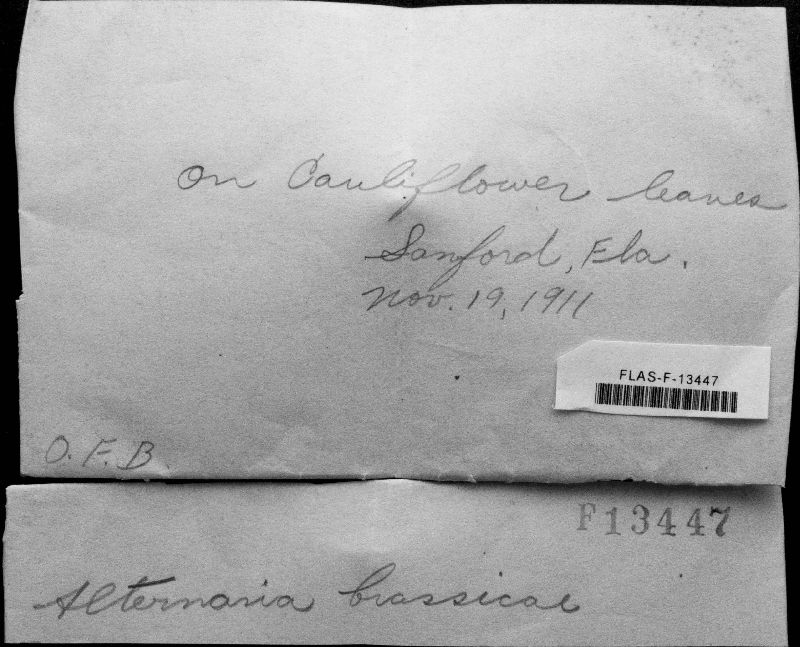 On Cauliflower leaves
Sanford, Fla.
Nov. 19, 1911
FLAS-F-13447
O.F.B.
F13447
Alternaria brassicae